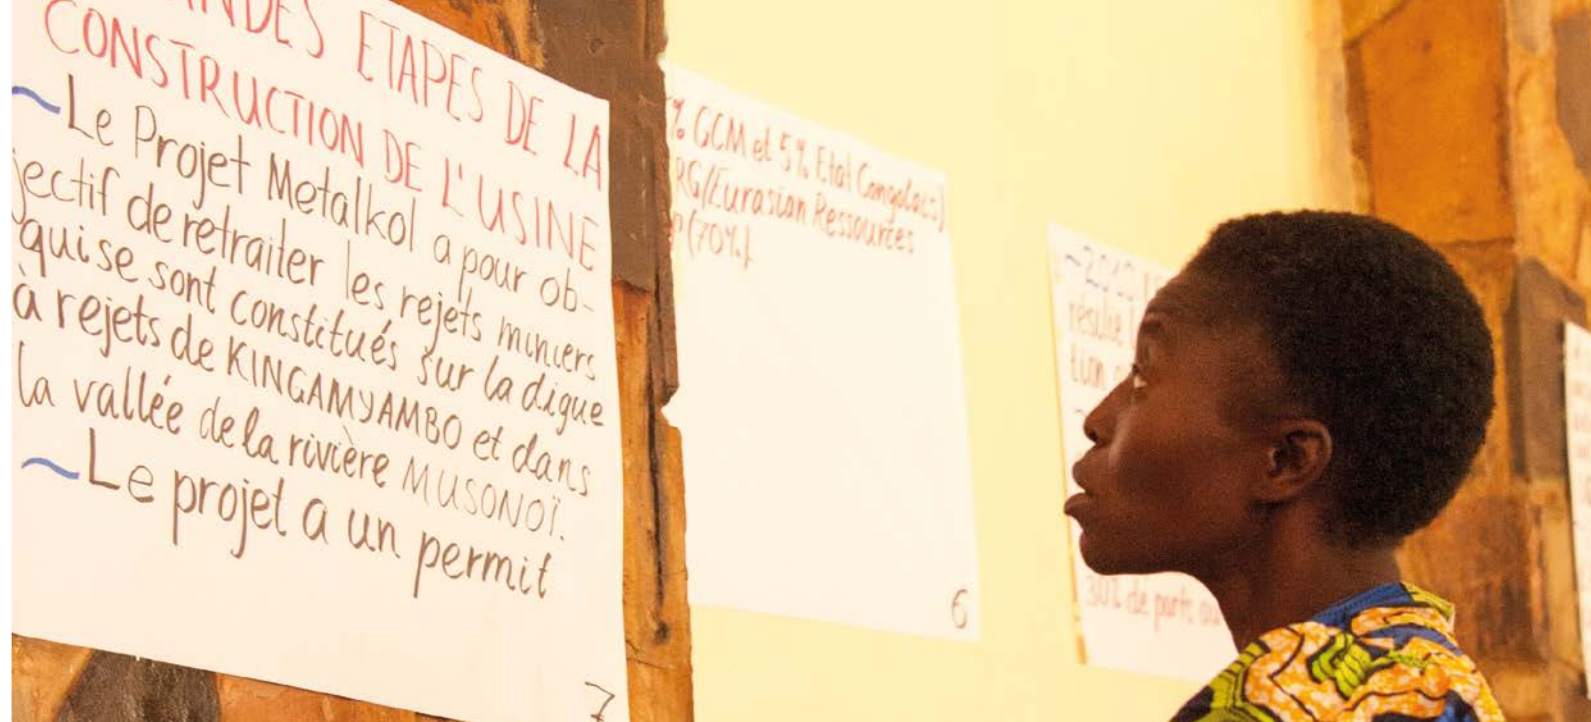 ETAPES DE LA
CONSTRUCTION DE L'USINE
~Le Projet Metalkol a pour ob-
jectif de retraiter les rejets miniers
qui se sont constitués sur la digue
à rejets de KINGAMYAMBO et dans
la vallée de la rivière MUSONOÏ.
~Le projet a un permit
7
% GCM et 5% Etat Congolais)
RG/Eurasian Ressources
(70%)
6
30% de parts